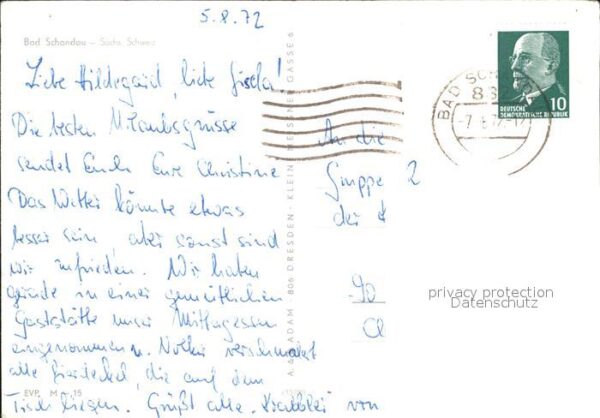 5.8.72
Bad Schandau – Sächs. Schweiz
Liebe Hildegard, liebe Gisela!
Die besten Urlaubsgrüsse
sendet Euch Eure Christine
Das Wetter könnte etwas
besser sein, aber sonst sind
wir zufrieden. Wir haben
gerade in einer gemütlichen
Gaststätte unser Mittagessen
eingenommen u. Volker verschmaust
alle Bierdeckel, die auf dem
Tisch liegen. Grüßt alle, von
EVP M 15
DRESDEN - KLEIN GASSE 6
BAD
DEUTSCHE
DEMOKRATISCHE REPUBLIK
10
An die
Gruppe 2
der
90
privacy protection
Datenschutz